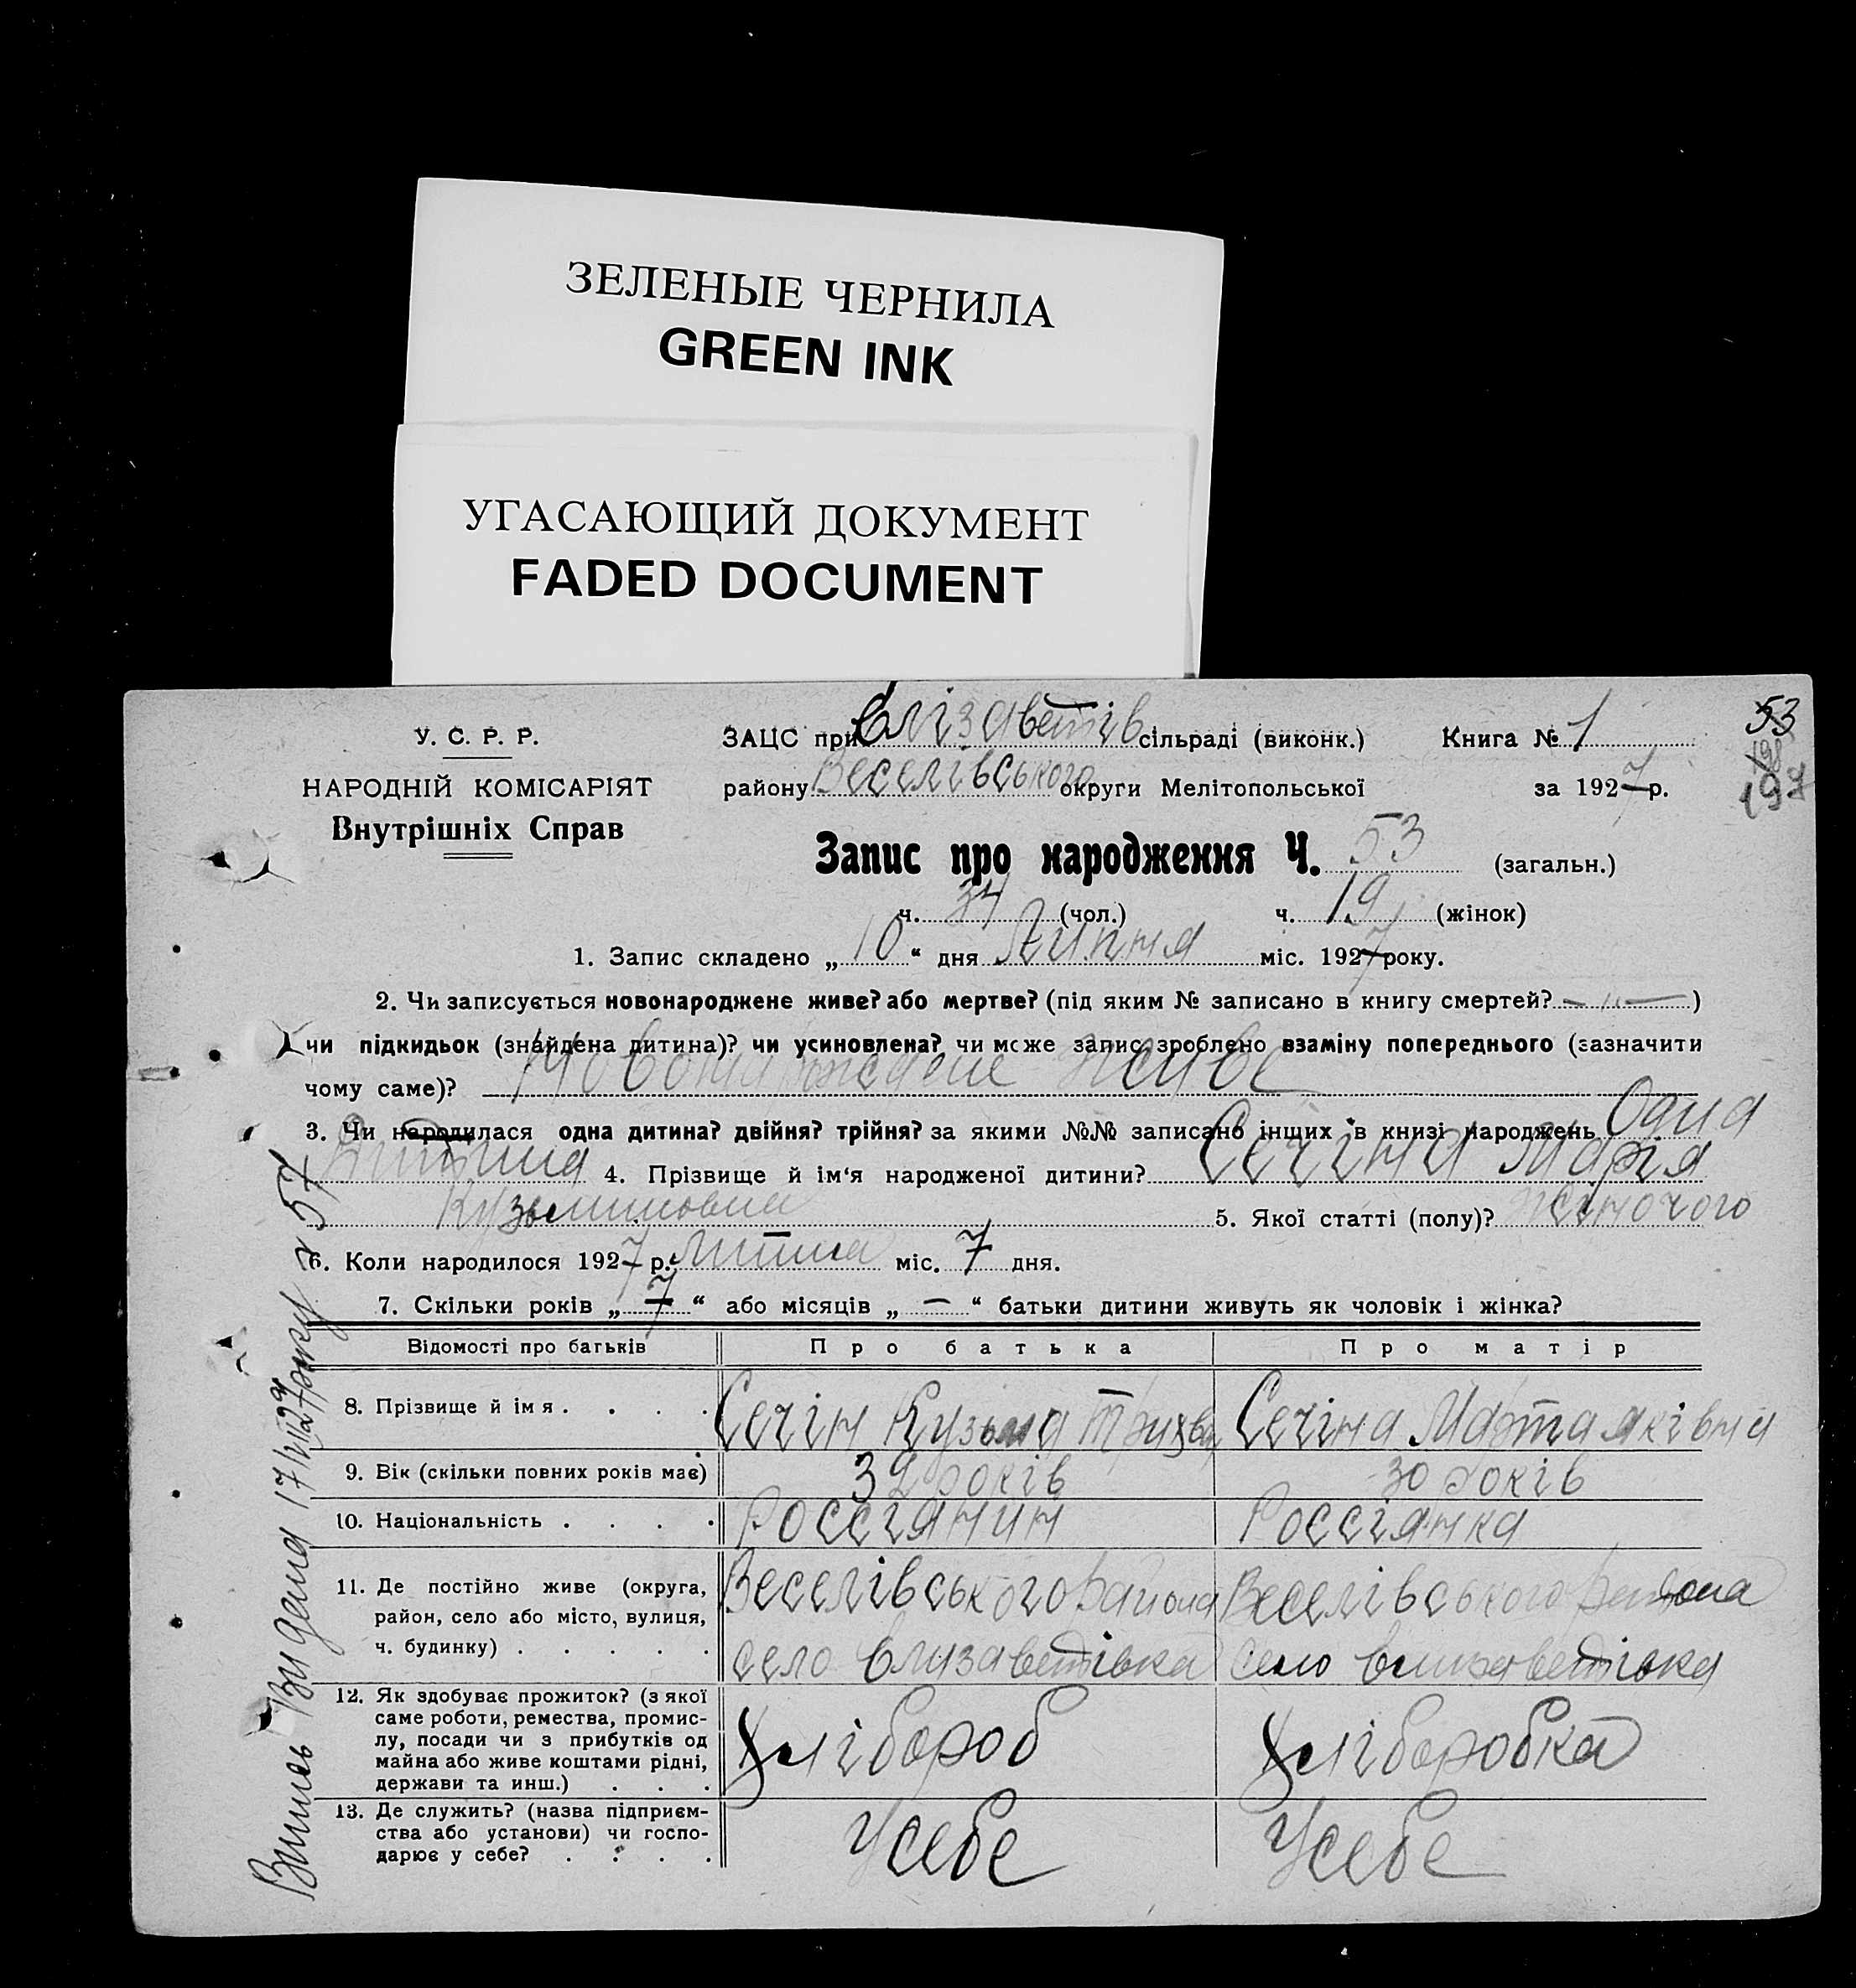 ЗЕЛЕНЫЕ ЧЕРНИЛА
GREEN INK
УГАСАЮЩИЙ ДОКУМЕНТ
FADED DOCUMENT
53
197
У. С. Р. Р.
НАРОДНІЙ КОМІСАРІЯТ
Внутрішніх Справ
ЗАЦС при Єлізаветів сільраді (виконк.) Книга № 1
району Веселівського округи Мелітопольської за 1927 р.
Запис про народження Ч. 53 (загальн.)
ч. 34 (чол.) ч. 19 (жінок)
1. Запис складено „10“ дня Липня міс. 1927 року.
2. Чи записується новонароджене живе? або мертве? (під яким № записано в книгу смертей? — „ — )
чи підкидьок (знайдена дитина)? чи усиновлена? чи може запис зроблено взаміну попереднього (зазначити
чому саме)? Новонарождене живе
3. Чи народилася одна дитина? двійня? трійня? за якими №№ записано інших в книзі народжень Одна
Дитина 4. Прізвище й ім‘я народженої дитини? Сечіна Марія
Кузьминовна 5. Якої статті (полу)? жіночого
6. Коли народилося 1927 р. Липня міс. 7 дня.
7. Скільки років „7“ або місяців „—“ батьки дитини живуть як чоловік і жінка?
Відомості про батьків Про батька Про матір
8. Прізвище й імя . . . . Сечін Кузьма Сечіна Марта Яківна
9. Вік (скільки повних років має) 39 років 30 років
10. Національність . . . . Россіянин Россіянка
11. Де постійно живе (округа, район, село або місто, вулиця, ч. будинку) . . . . . Веселівського Района село Єлизаветівка Веселівського Района село Єлизаветівка
12. Як здобуває прожиток? (з якої саме роботи, ремества, промислу, посади чи з прибутків од майна або живе коштами рідні, держави та инш.) . . . Хлібороб Хліборобка
13. Де служить? (назва підприємства або установи) чи господарює у себе? . . . . Усебе Усебе
Випись Видана 17/VII 27 року № 57